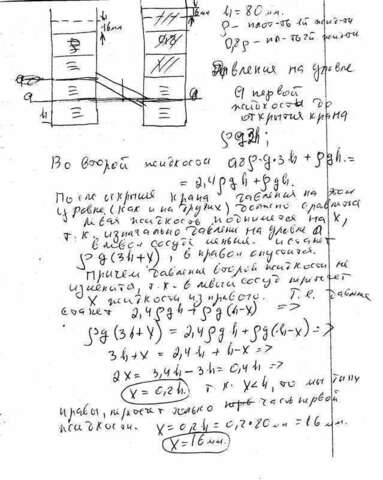 16мм
16мм
h = 80 мм.
ρ – плот-ть 1й жид-ти
0,8ρ – пл-ть 2й жидкой
Давления на уровне
а первой
жидкости до
открытия крана
ρg3h;
а
а
h
Во второй жидкости 0,8ρ·g·3h + ρgh =
= 2,4ρgh + ρgh.
После открытия крана давления на этом
уровне (как и на других) должно сравняться
левая жидкость поднимется на x,
т.к. изначально давление на уровне а
в левом сосуде меньше. и станет
ρg(3h+x), в правом опустится.
Причем давление второй жидкости не
изменится, т.к. в левый сосуд перетечет
x жидкости из правого. Т.е. давление
станет 2,4ρgh + ρg(h-x) =>
ρg(3h+x) = 2,4ρgh + ρg(h-x) =>
3h+x = 2,4h + h-x =>
2x = 3,4h - 3h = 0,4h =>
x = 0,2h. т.к. x<h, то мы
правы, перетечёт только часть первой
жидкости. x = 0,2h = 0,2·80мм = 16 мм.
x = 16 мм.